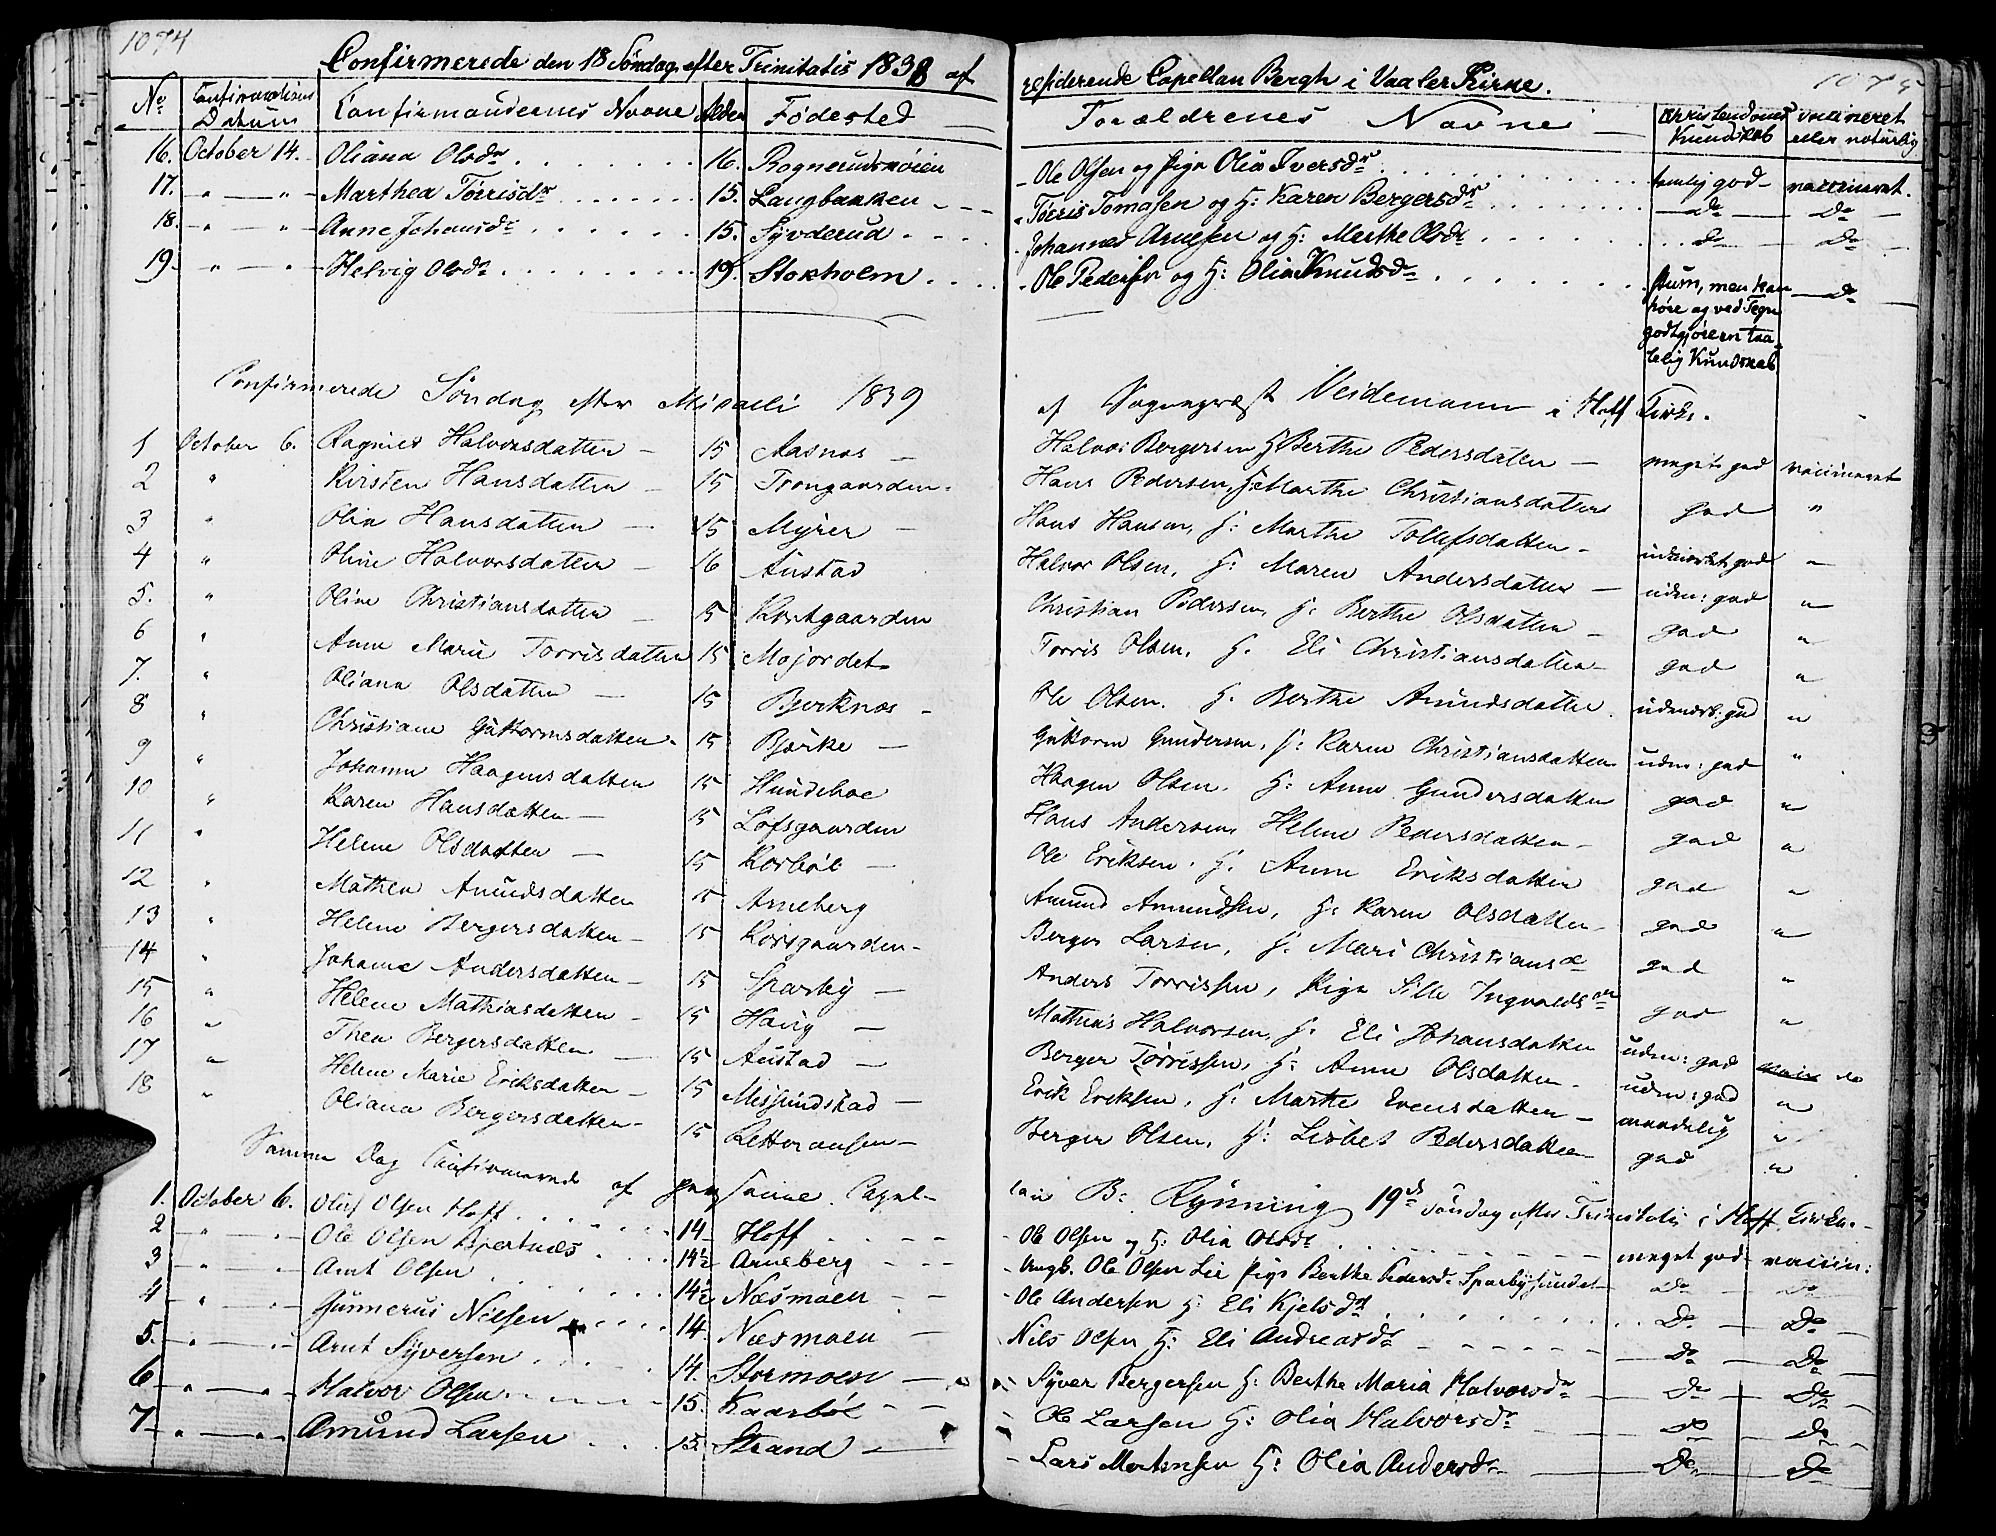 1074
Confirmerede den 18 Søndag efter Trinitatis 1838 af
residerende Capellan Bergh i Vaaler Kirke.
1075
No Confirmations Datum Confirmandernes Navne Alder Fødested Forældrenes Navne Christendoms Kundskab vaccineret eller naturlig
16. October 14. Oliana Olsdr 16. Rognerudsmoien Ole Olsen og Pige Olia Iversdr temlig god vaccineret.
17. " " Marthea Tørrisdr 15. Langbakken Tørris Tomasen og H: Karen Bergersdr Do Do
18. " " Anne Johansdr 15. Syvderud Johannes Arnesen og H: Marthe Olsdr do Do
19. " " Helvig Olsdr 19. Stokholm Ole Pedersen og H: Olia Knudsdr stum, men kan Do
høre og ved Tegn
godtgjøre en taa-
lelig Kundskab
Confirmerede Søndag efter Micaeli 1839 af Sognepræst Neidemann i Hoff Kirke.
1 October 6. Ragnild Halvorsdatter 15 Aasnes Halvor Bergersen H: Berthe Pedersdatter meget god vaccineret
2 " Kirsten Hansdatter 15 Trongaarden Hans Pedersen, H: Marthe Christiansdatter god "
3 " Olia Hansdatter 15 Myrer Hans Hansen, H: Marthe Tollefsdatter udmærket god "
4 " Oline Halvorsdatter 16 Austad Halvor Olsen, H: Maren Andersdatter udm: god "
5. " Oline Christiansdatter 15 Kortgaarden Christian Pedersen, H: Berthe Olsdatter god "
6 " Anne Marie Torrisdatter 15 Mojordet Torris Olsen, H: Eli Christiansdatter god "
7. " Oliana Olsdatter 15 Bjerknæs Ole Olsen. H: Berthe Amundsdatter udmærk: god "
8 " Christiane Guttormsdatter 15 Bjørke Guttorm Gundersen, H: Karen Christiansdatter udm: god "
9 " Johanne Haagensdatter 15 Hundehoe Haagen Olsen, H: Anne Gundersdatter god "
10 " Karen Hansdatter 15 Lofsgaarden Hans Andersen, Helene Pedersdatter god "
11 " Helene Olsdatter 15 Korbøl Ole Eriksen, H: Anne Eriksdatter god "
12 " Mathea Amundsdatter 15 Arneberg Amund Amundsen, H: Karen Olsdatter god "
13 " Helene Bergersdatter 15 Korsgaarden Berger Larsen, H: Mari Christiansdr god "
14 " Johanne Andersdatter 15 Sparby Anders Torrissen, Pige Sille Ingvaldsdr god "
15 " Helene Mathiasdatter 15 Haug Mathias Halvorsen, H: Eli Johansdatter udm: god do
16 " Thea Bergersdatter 15 Austad Berger Tørrissen, H: Anne Olsdatter udm: god "
17 " Helene Marie Eriksdatter 15 Melsundstad Erik Eriksen, H: Marthe Evensdatter maadelig "
18 " Oliana Bergersdatter 15 Berger Olsen, H: Lisbet Pedersdatter god "
Samme Dag Confirmerede af Capel-
lan B: Rynning 19de Søndag efter Trinitatis i Hoff Kirke.
1. October 6. Oluf Olsen Hoff 14 Hoff Ole Olsen og H: Olia Olsdr meget god vaccin:
2 " " Ole Olsen Bjertnæs 14½ Arneberg Ungk. Ole Olsen Lie Pige Berthe Pedersdr Sparbysundet Do Do
3 " " Arnt Olsen 14½ Næsmoen Ole Andersen H: Eli Kjelsdr Do Do
4 " " Gunnerus Nilsen 14. Næsmoen Nils Olsen H: Eli Andreasdr Do Do
5. " " Arnt Syversen 14. Stormoen Syver Bergersen H: Berthe Maria Halvorsdr Do Do
6 " " Halvor Olsen 15. Kaarbøl Ole Larsen H: Olia Halvorsdr Do Do
7 " " Amund Larsen 15. Strand Lars Mortensen H: Olia Andersdr Do Do